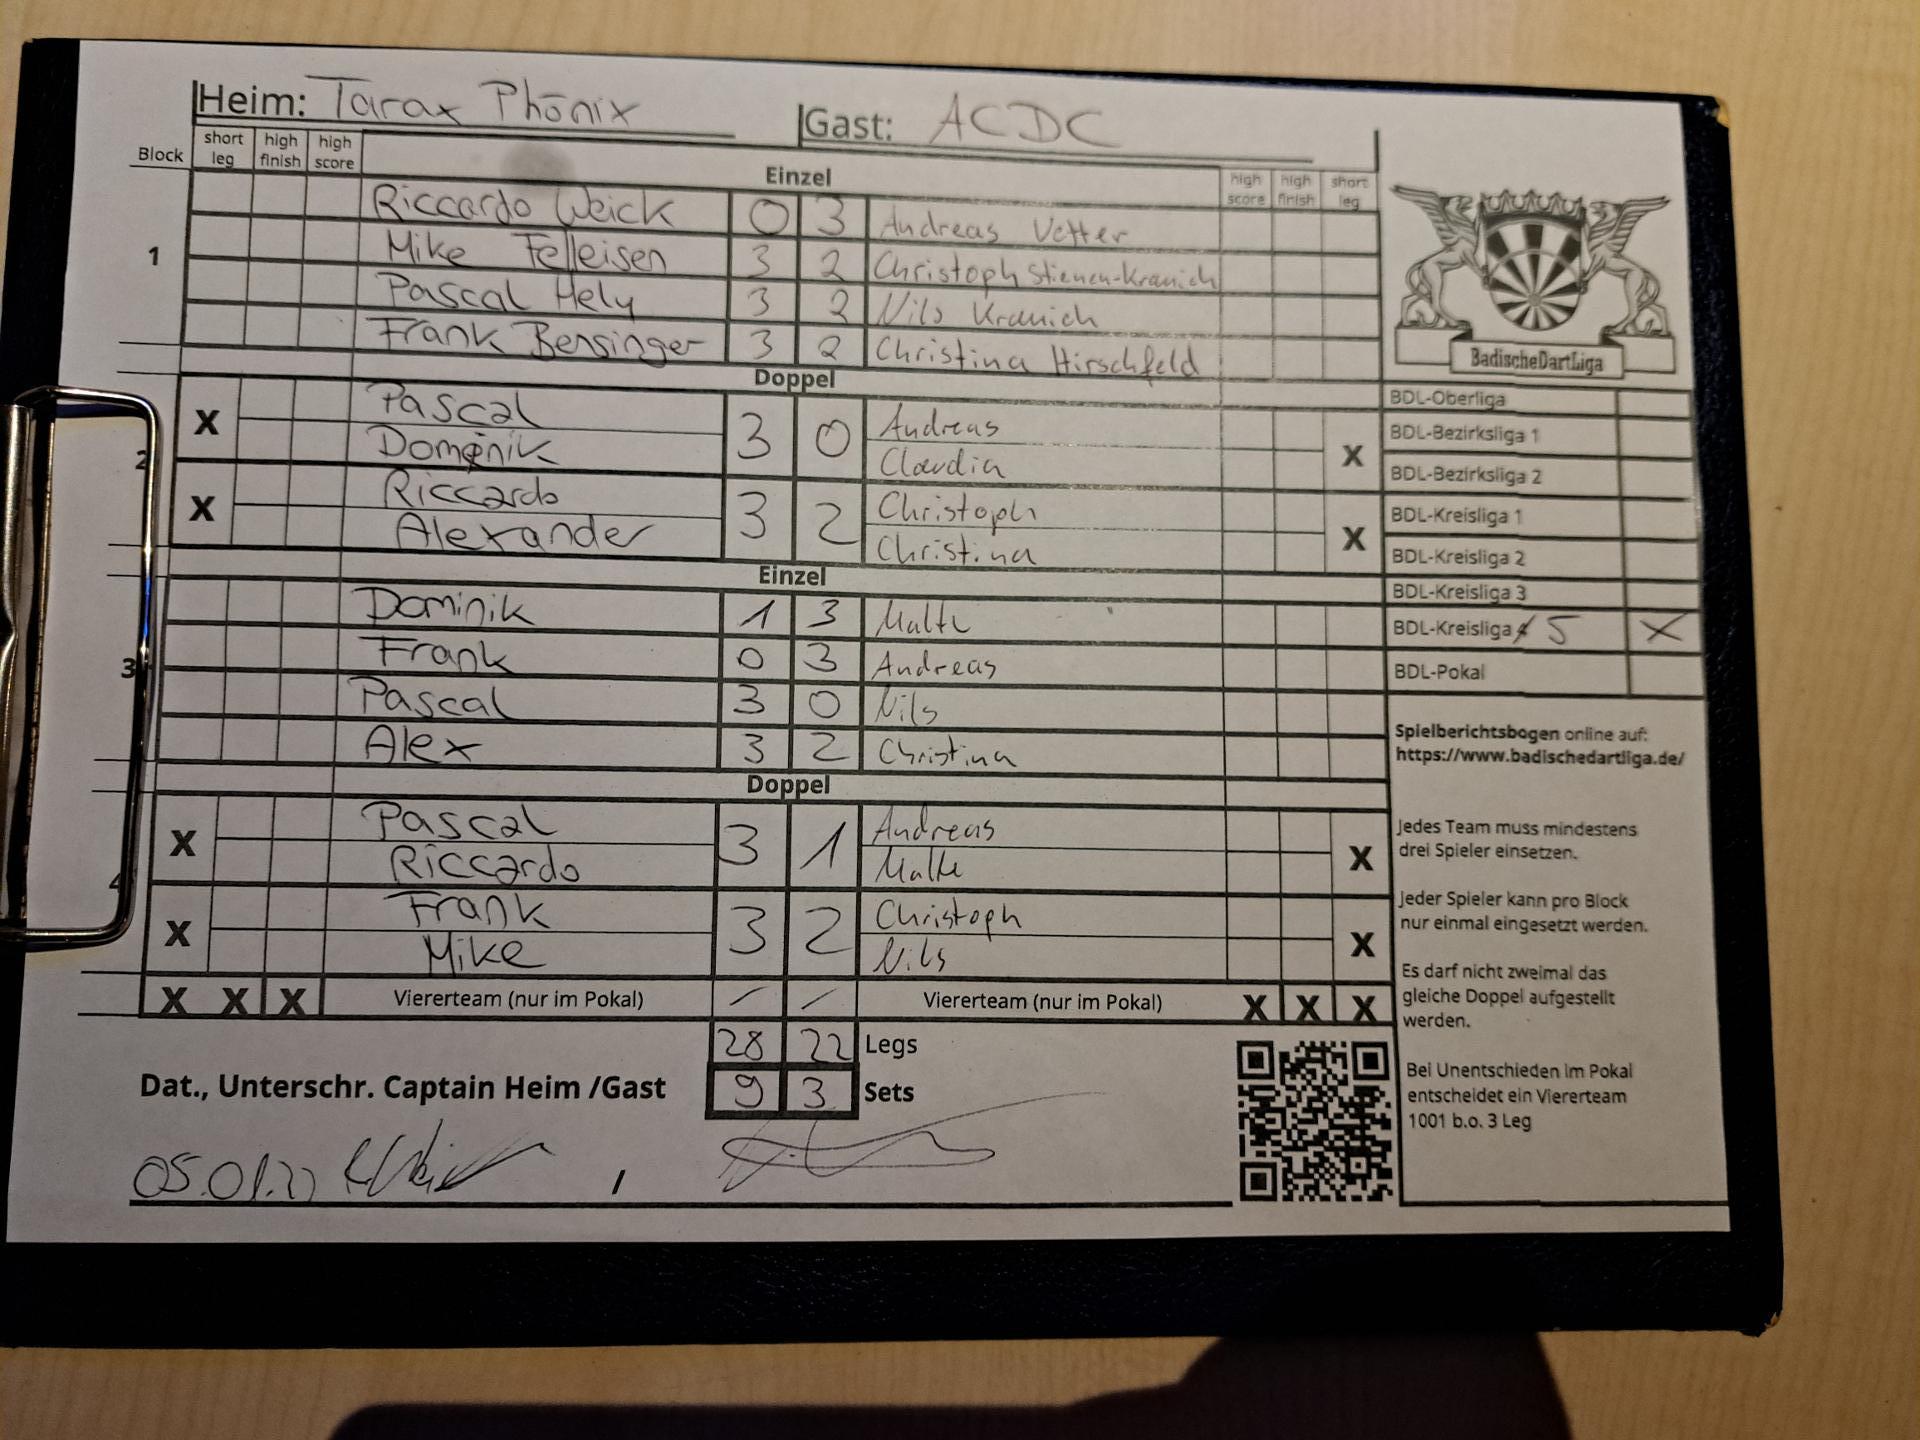 Heim: Tarax Phönix Gast: ACDC
Block short leg high finish high score Einzel high score high finish short leg
1
Riccardo Weick 0 3 Andreas Vetter
Mike Felleisen 3 2 Christoph Stienen-Kranich
Pascal Hely 3 2 Nils Kranich
Frank Bensinger 3 2 Christina Hirschfeld
Doppel
2
X Pascal 3 0 Andreas X
Domenik Claudia
X Riccardo 3 2 Christoph X
Alexander Christina
Einzel
3
Dominik 1 3 Malte
Frank 0 3 Andreas
Pascal 3 0 Nils
Alex 3 2 Christina
Doppel
4
X Pascal 3 1 Andreas X
Riccardo Malte
X Frank 3 2 Christoph X
Mike Nils
X X X Viererteam (nur im Pokal) / / Viererteam (nur im Pokal) X X X
28 22 Legs
9 3 Sets
Dat., Unterschr. Captain Heim /Gast
05.01.22 /
BadischeDartLiga
BDL-Oberliga
BDL-Bezirksliga 1
BDL-Bezirksliga 2
BDL-Kreisliga 1
BDL-Kreisliga 2
BDL-Kreisliga 3
BDL-Kreisliga 5 X
BDL-Pokal
Spielberichtsbogen online auf:
https://www.badischedartliga.de/
Jedes Team muss mindestens
drei Spieler einsetzen.
Jeder Spieler kann pro Block
nur einmal eingesetzt werden.
Es darf nicht zweimal das
gleiche Doppel aufgestellt
werden.
Bei Unentschieden im Pokal
entscheidet ein Viererteam
1001 b.o. 3 Leg